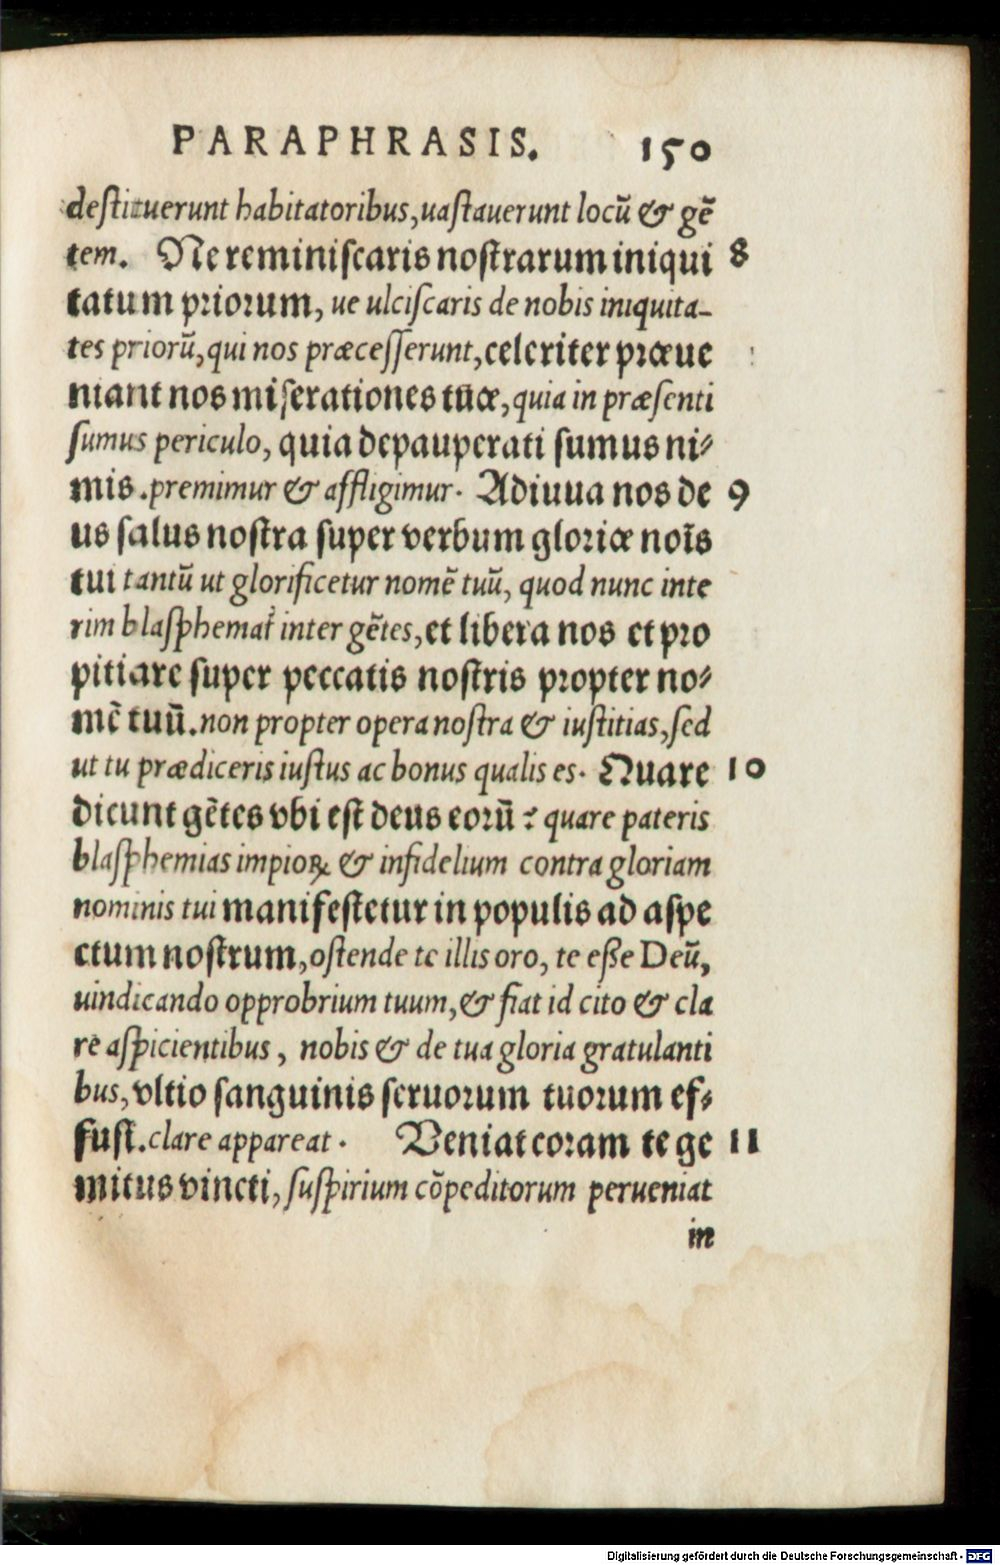 PARAPHRASIS. 150
destituerunt habitatoribus, uastauerunt locū & gē
tem. Ne reminiscaris nostrarum iniqui 8
tatum priorum, ue ulciscaris de nobis iniquita-
tes priorū, qui nos præcesserunt, celeriter præue
niant nos miserationes tuæ, quia in præsenti
sumus periculo, quia depauperati sumus ni-
mis. premimur & affligimur. Adiuua nos de 9
us salus nostra super verbum gloriæ noīs
tui tantū ut glorificetur nomē tuū, quod nunc inte
rim blasphemat̄ inter gētes, et libera nos et pro
pitiare super peccatis nostris propter no-
mē tuū. non propter opera nostra & iustitias, sed
ut tu prædiceris iustus ac bonus qualis es. Quare 10
dicunt gētes vbi est deus eorū? quare pateris
blasphemias impioꝝ & infidelium contra gloriam
nominis tui manifestetur in populis ad aspe
ctum nostrum, ostende te illis oro, te esse Deū,
uindicando opprobrium tuum, & fiat id cito & cla
re aspicientibus, nobis & de tua gloria gratulanti
bus, vltio sanguinis seruorum tuorum ef-
fust. clare appareat. Veniat coram te ge 11
mitus vincti, suspirium cōpeditorum perueniat
in
Digitalisierung gefördert durch die Deutsche Forschungsgemeinschaft - DFG